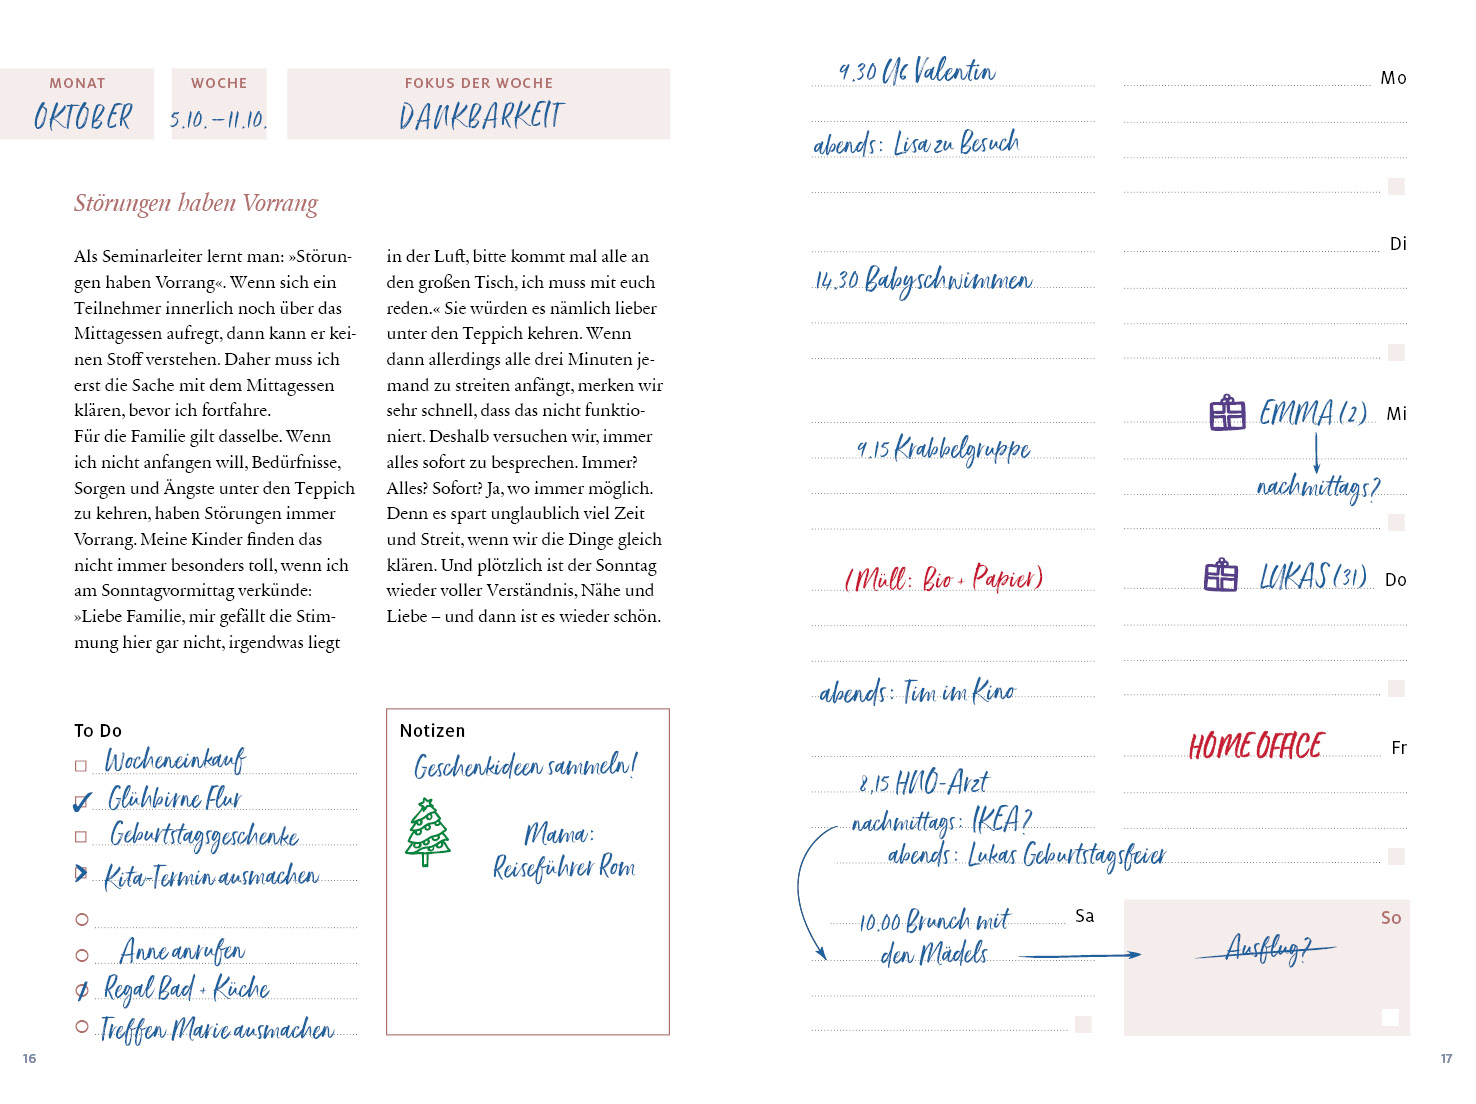 MONAT
OKTOBER
WOCHE
5.10. – 11.10.
FOKUS DER WOCHE
DANKBARKEIT
Störungen haben Vorrang
Als Seminarleiter lernt man: »Störun-
gen haben Vorrang«. Wenn sich ein
Teilnehmer innerlich noch über das
Mittagessen aufregt, dann kann er kei-
nen Stoff verstehen. Daher muss ich
erst die Sache mit dem Mittagessen
klären, bevor ich fortfahre.
Für die Familie gilt dasselbe. Wenn
ich nicht anfangen will, Bedürfnisse,
Sorgen und Ängste unter den Teppich
zu kehren, haben Störungen immer
Vorrang. Meine Kinder finden das
nicht immer besonders toll, wenn ich
am Sonntagvormittag verkünde:
»Liebe Familie, mir gefällt die Stim-
mung hier gar nicht, irgendwas liegt
in der Luft, bitte kommt mal alle an
den großen Tisch, ich muss mit euch
reden.« Sie würden es nämlich lieber
unter den Teppich kehren. Wenn
dann allerdings alle drei Minuten je-
mand zu streiten anfängt, merken wir
sehr schnell, dass das nicht funktio-
niert. Deshalb versuchen wir, immer
alles sofort zu besprechen. Immer?
Alles? Sofort? Ja, wo immer möglich.
Denn es spart unglaublich viel Zeit
und Streit, wenn wir die Dinge gleich
klären. Und plötzlich ist der Sonntag
wieder voller Verständnis, Nähe und
Liebe – und dann ist es wieder schön.
To Do
Wocheneinkauf
Glühbirne Flur
Geburtstagsgeschenke
Kita-Termin ausmachen
Anne anrufen
Regal Bad + Küche
Treffen Marie ausmachen
Notizen
Geschenkideen sammeln!
Mama:
Reiseführer Rom
16
9.30 U6 Valentin
Mo
abends: Lisa zu Besuch
Di
14.30 Babyschwimmen
EMMA (2) Mi
9.15 Krabbelgruppe
nachmittags?
(Müll: Bio + Papier)
LUKAS (31) Do
abends: Tim im Kino
HOME OFFICE Fr
8.15 HNO-Arzt
nachmittags: IKEA?
abends: Lukas Geburtstagsfeier
10.00 Brunch mit
den Mädels
Sa
So
Ausflug?
17